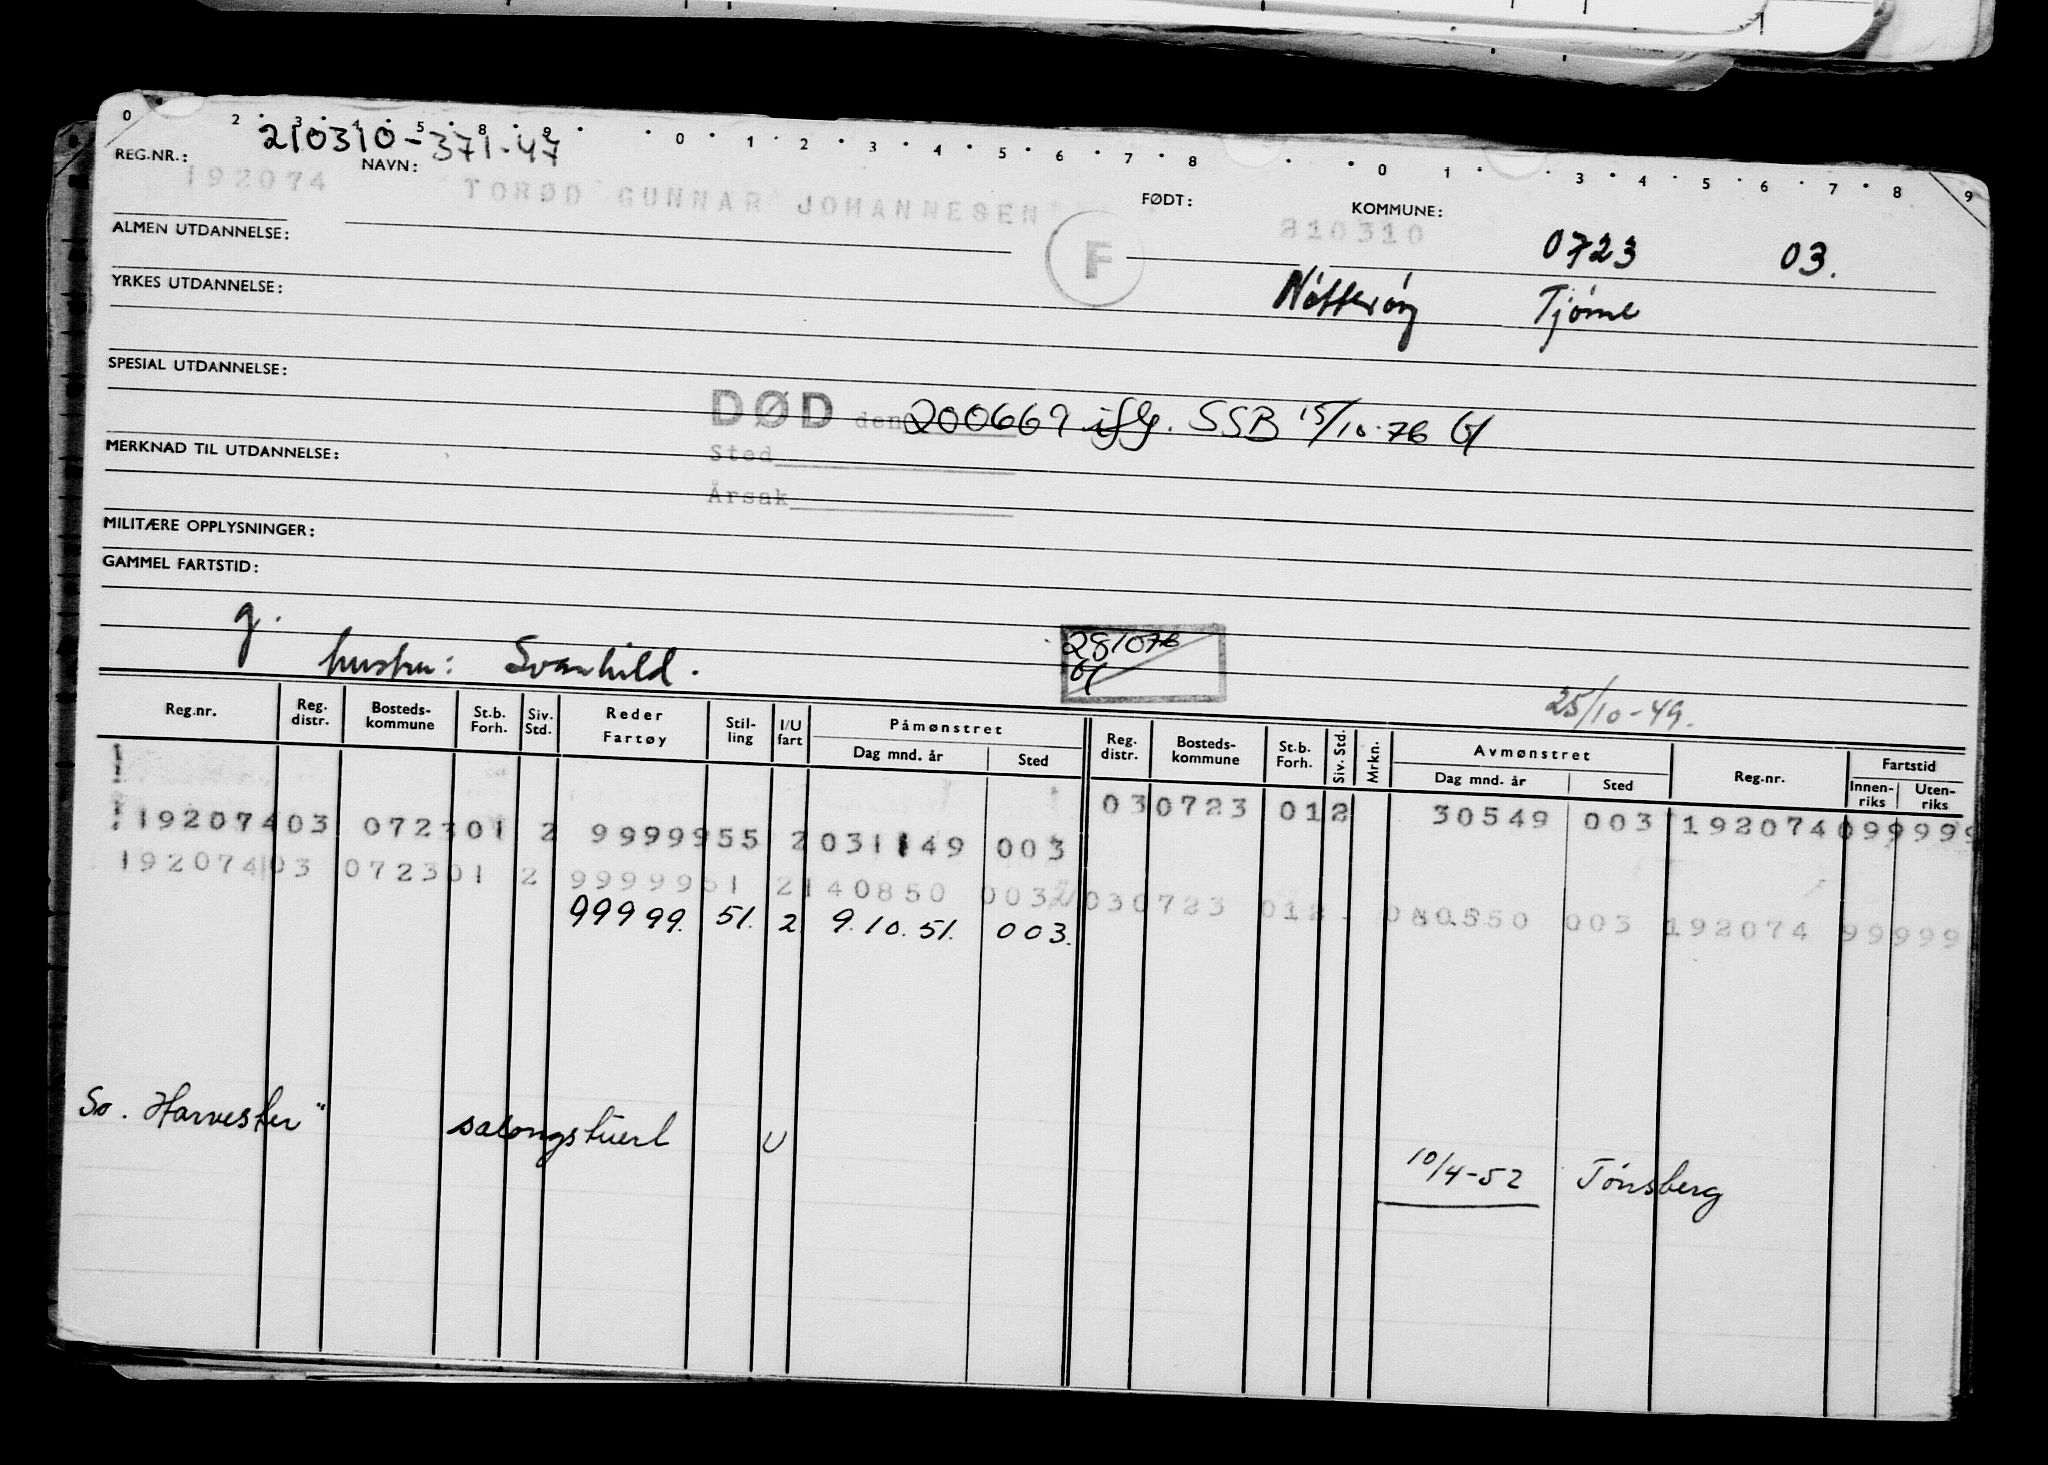 0 2 3 4 5 8 9 0 1 2 3 4 5 6 7 8 0 1 3 4 5 6 7 8 9
210310-371-47
REG.NR.: NAVN: FØDT: KOMMUNE:
192074 TORØD GUNNAR JOHANNESEN 210310
F
0723 03.
ALMEN UTDANNELSE:
Nøtterøy Tjøme
YRKES UTDANNELSE:
SPESIAL UTDANNELSE:
DØD den 200669 iflg. SSB 15/10-76
Sted
MERKNAD TIL UTDANNELSE:
Årsak
MILITÆRE OPPLYSNINGER:
GAMMEL FARTSTID:
g.
hustru: Svanhild.
281076
25/10-49.
Reg.nr. Reg. distr. Bosteds-kommune St.b. Forh. Siv. Std. Reder Fartøy Stil-ling I/U fart Påmønstret Dag mnd. år Sted Reg. distr. Bosteds-kommune St.b. Forh. Siv. Std. Mrkn. Avmønstret Dag mnd. år Sted Reg.nr. Fartstid Innen-riks Uten-riks
030723 012 30549 003 192074 099999
192074 03 072301 2 9999955 2 031149 003
192074 03 072301 2 9999951 2 140850 003 030723 012 080550 003 192074 99999
99999. 51. 2 9.10.51. 003.
So. Harvester" salongstuert U
10/4-52 Tønsberg